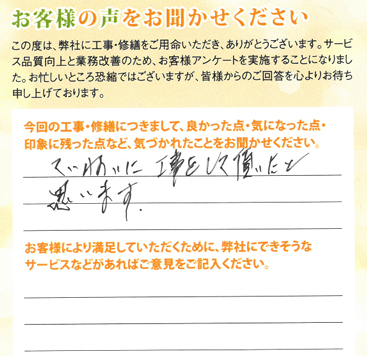 お客様の声をお聞かせください
この度は、弊社に工事・修繕をご用命いただき、ありがとうございます。サービ
ス品質向上と業務改善のため、お客様アンケートを実施することになりまし
た。お忙しいところ恐縮ではございますが、皆様からのご回答を心よりお待ち
申し上げております。
今回の工事・修繕につきまして、良かった点・気になった点・
印象に残った点など、気づかれたことをお聞かせください。
ていねいに 工事をして頂いたと
思います.
お客様により満足していただくために、弊社にできそうな
サービスなどがあればご意見をご記入ください。